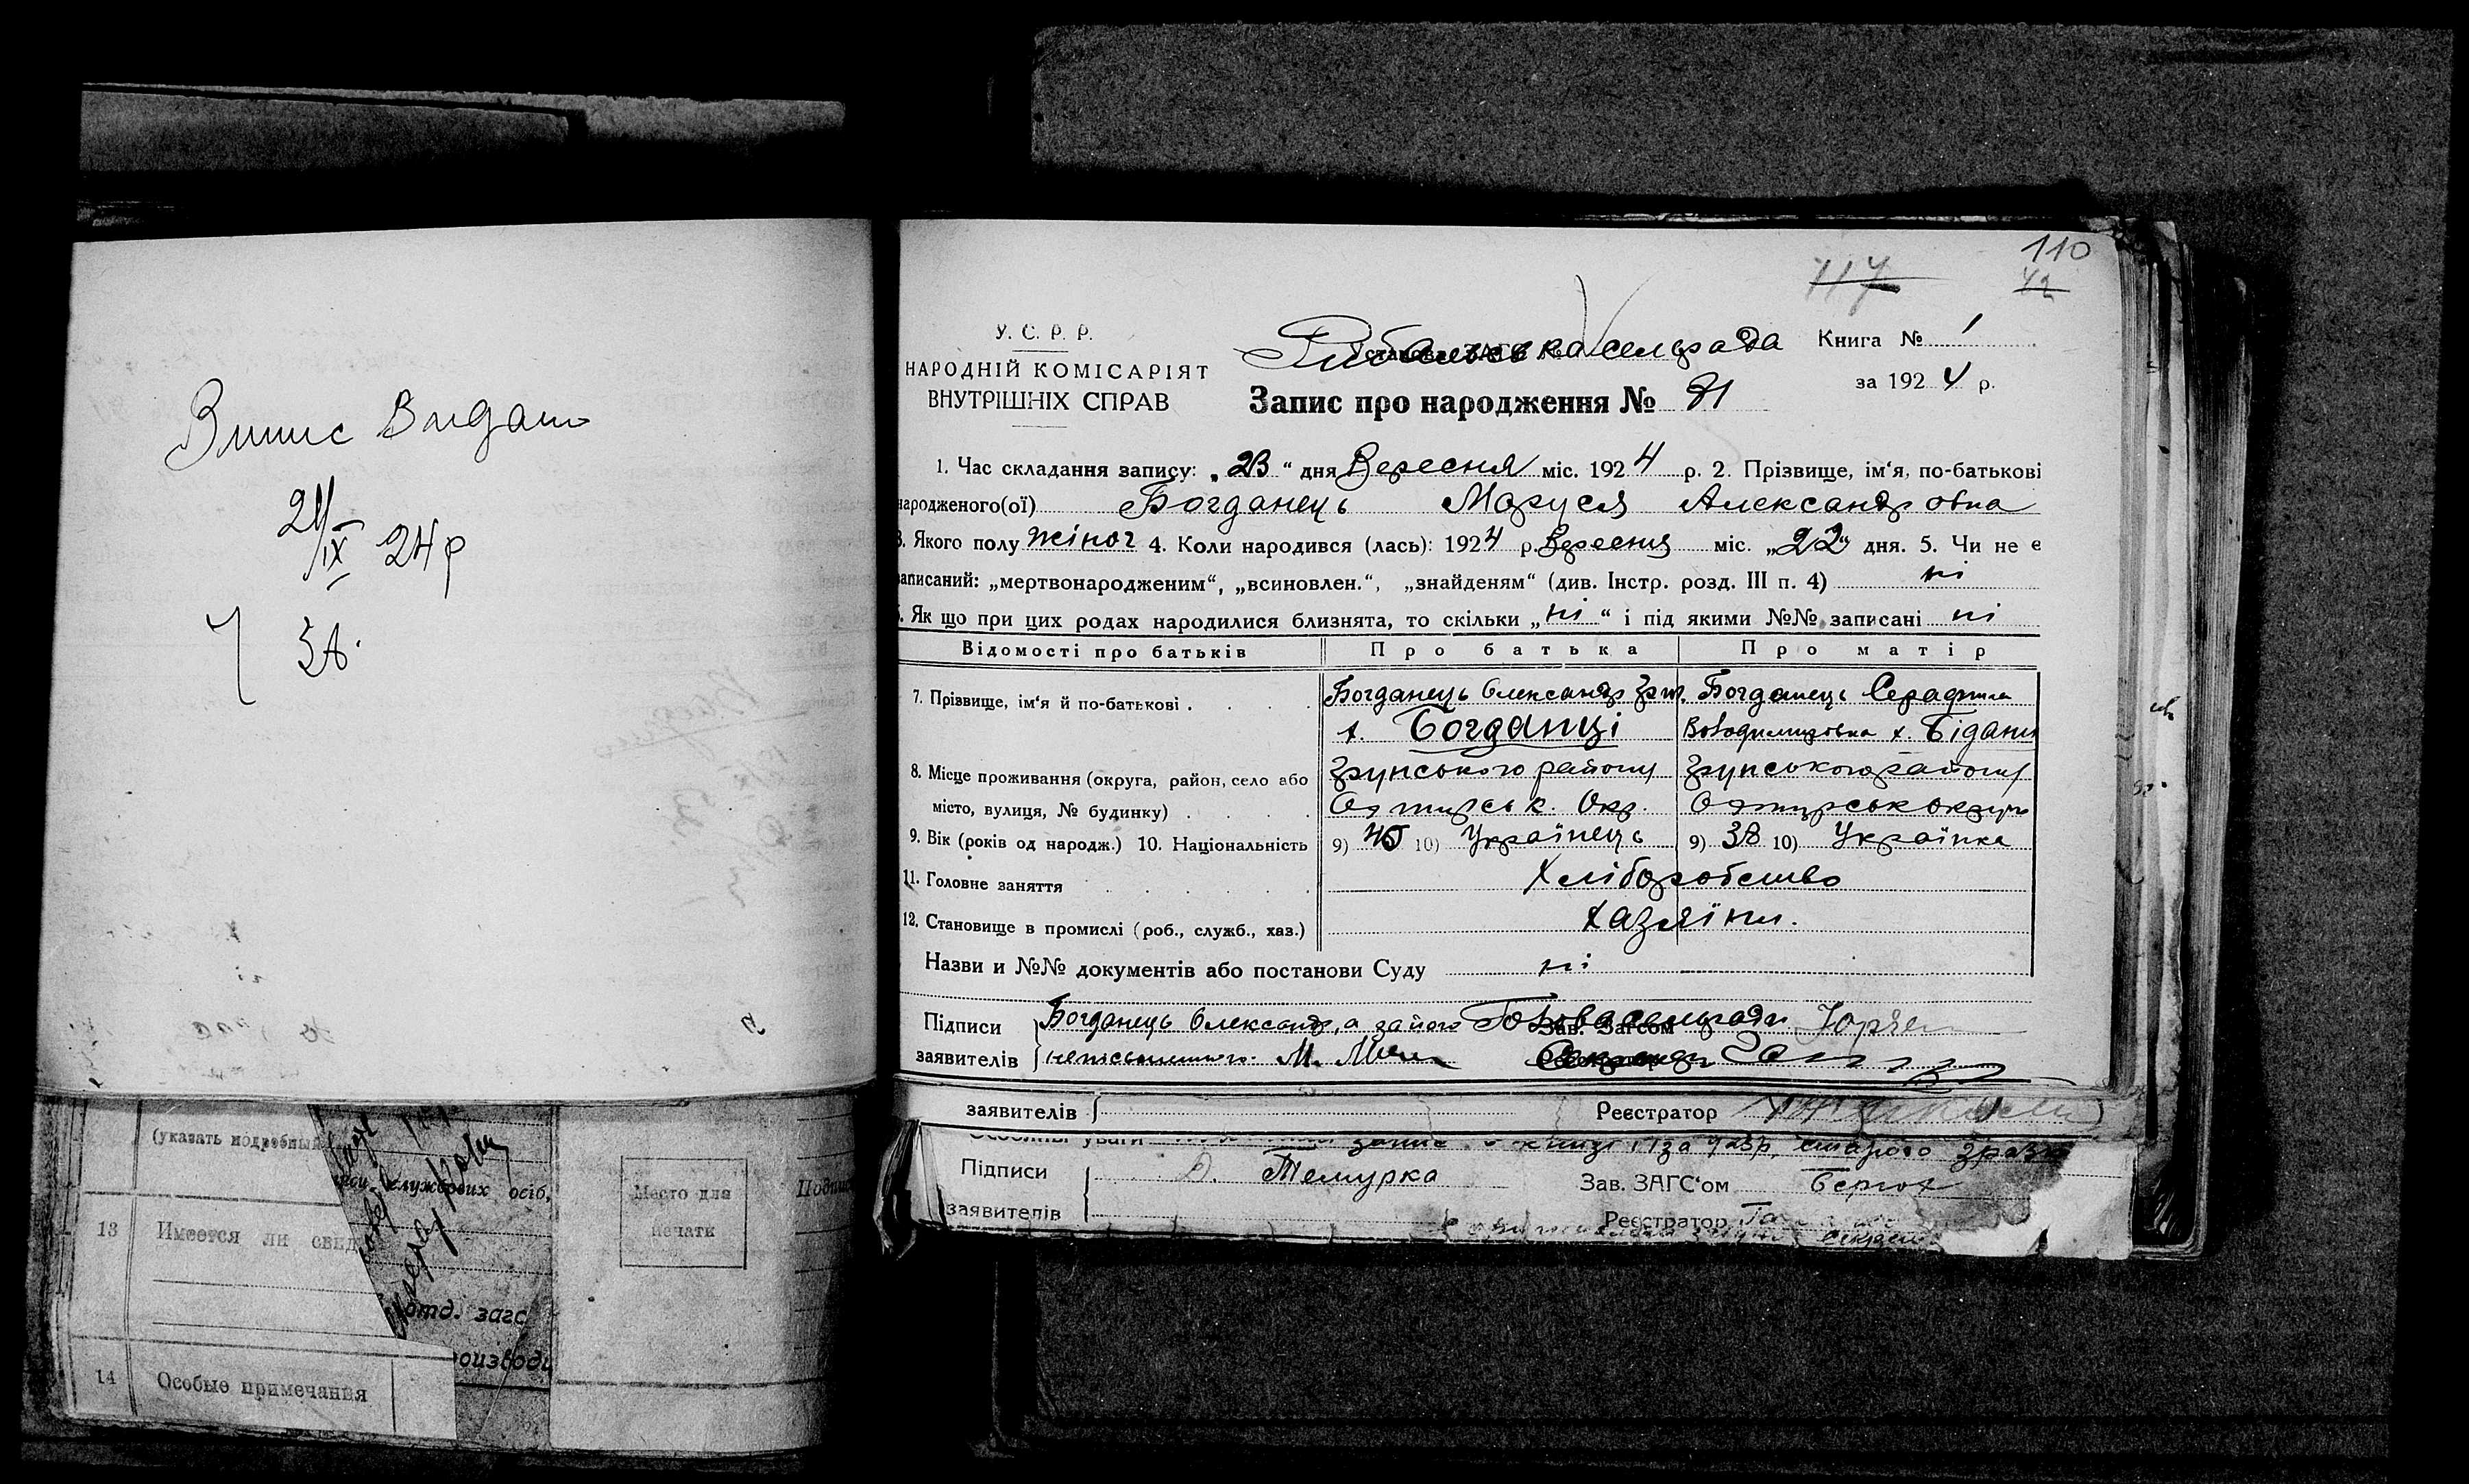 Випис Видано
24/IX 24 р
110
117
42
У. С. Р. Р.
НАРОДНІЙ КОМІСАРІЯТ
ВНУТРІШНІХ СПРАВ
Рибальська сельрада
Книга № 1
за 1924 р.
Запис про народження №
1. Час складання запису: „23“ дня Вересня міс. 1924 р. 2. Прізвище, ім‘я, по-батькові
народженого(ої) Богданець Маруся Александровна
3. Якого полу жіноч 4. Коли народився (лась): 1924 р. Вересня міс. „22“ дня. 5. Чи не є
записаний: „мертвонародженим“, „всиновлен.“, „знайденям“ (див. Інстр. розд. III п. 4) ні
6. Як що при цих родах народилися близнята, то скільки „ні“ і під якими №№ записані ні
Відомості про батьків Про батька Про матір
7. Прізвище, ім‘я й по-батькові . Богданець Олександр Гри. Богданець Серафима
х. Богданці Володимировна х. Бідани
8. Місце проживання (округа, район, село або Грунського району Грунського району
місто, вулиця, № будинку) Охтирськ. Окр. Охтирськ округи
9. Вік (років од народж.) 10. Національність 9) 45 10) Українець 9) 38 10) Українка
11. Головне заняття Хліборобство
12. Становище в промислі (роб., служб., хаз.) Хазяїни.
Назви и №№ документів або постанови Суду ні
Підписи Богданець Олександр, а за його Голова сельради
заявителів неписьменного М. Секретар
заявителів Реєстратор
запис
Підписи Темурка Зав. ЗАГС‘ом
заявителів Реєстратор
(указать подробный
службових осіб,
Место для
печати
13 Имеется ли свид
отд. загс
14 Особые примечания